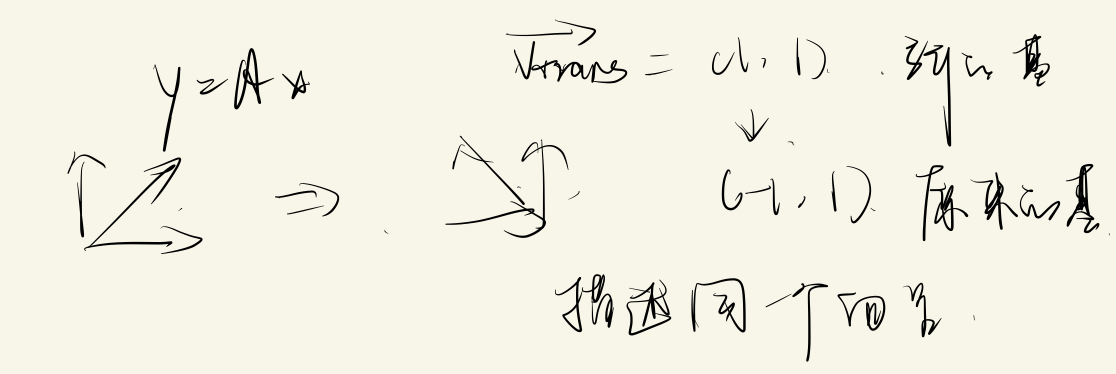 y = Ax
Vtrans = (1, 1). 新的基
↓
(-1, 1). 原来的基.
描述同一个向量.